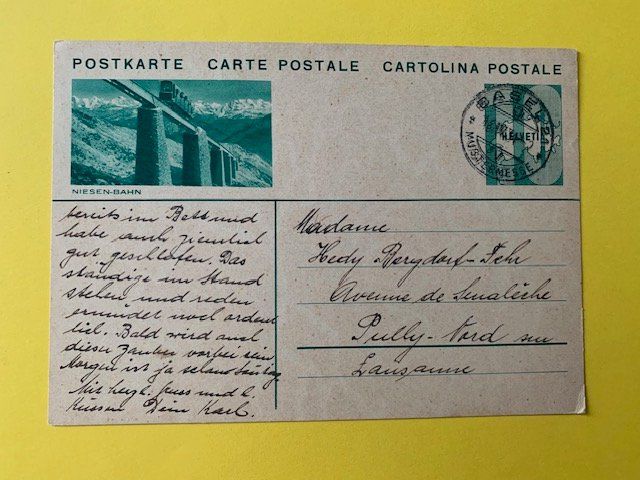 POSTKARTE CARTE POSTALE CARTOLINA POSTALE
NIESEN-BAHN
BASEL 2
MUSTERMESSE
HELVETIA
bereits im Bett und
habe auch ziemlich
gut geschlafen. Das
ständige im Stand
stehen und reden
ermüdet noch ordent
lich. Bald wird auch
dieser Zauber vorbei sein
Morgen ist ja schon
Mit herzl. Gruss und l.
Küssen Dein Karl.
Madame
Hedy Bergdorf-Fehr
Avenue de Senalèche
Pully-Nord sur
Lausanne